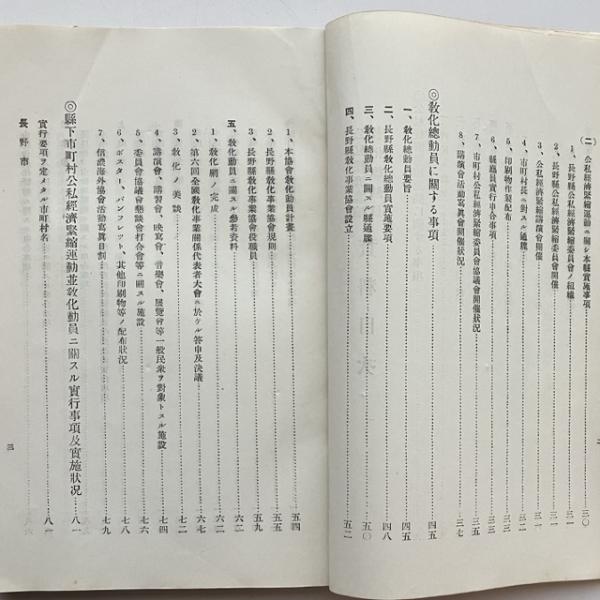 (二) 公私經濟緊縮運動ニ關シ本縣實施事項……三〇
1、長野縣公私經濟緊縮委員會ノ組織……三一
2、長野縣公私經濟緊縮委員會開催……三一
3、公私經濟緊縮講演會開催……三一
4、市町村長ニ對スル通牒……三二
5、印刷物作製配布……三三
6、縣廳員實行申合事項……三四
7、市町村公私經濟緊縮委員會協議會開催狀況……三五
8、講演會活動寫眞會開催狀況……三七
◎敎化總動員に關する事項……四五
一、敎化總動員要旨……四五
二、長野縣敎化總動員實施要項……四八
三、敎化總動員ニ關スル縣通牒……五〇
四、長野縣敎化事業協會設立……五二
二
1、本協會敎化動員計畫……五四
2、長野縣敎化事業協會規則……五五
3、長野縣敎化事業協會役職員……五九
五、敎化動員ニ關スル參考資料……六二
1、敎化網ノ完成……六二
2、第六回全國敎化事業關係代表者大會ニ於ケル答申及決議……六七
3、敎化ノ美談……七二
4、講演會、講習會、映寫會、音樂會、展覽會等一般民衆ヲ對象トスル施設……七四
5、委員會協議會懇談會打合會等ニ關スル施設……七六
6、ポスター、パンフレット、其他印刷物等ノ配布狀況……七八
7、信濃海外協會活動寫眞日割……七九
◎縣下市町村公私經濟緊縮運動並敎化動員ニ關スル實行事項及實施狀況……八一
實行要項ヲ定メタル市町村名……八一
長野市
三